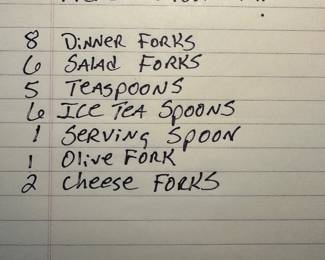 8 Dinner Forks
6 Salad Forks
5 Teaspoons
6 Ice Tea Spoons
1 Serving Spoon
1 Olive Fork
2 Cheese Forks